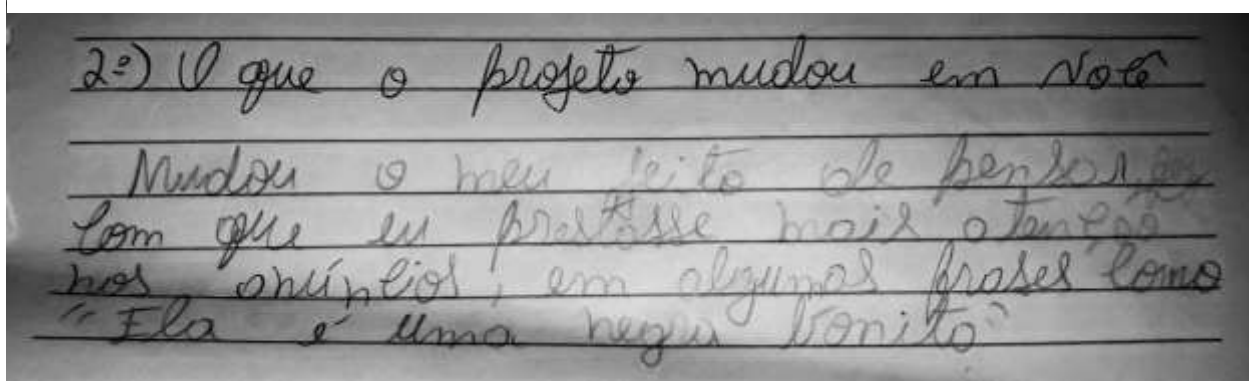 2º) O que o projeto mudou em você
Mudou o meu jeito de pensar,
com que eu prestasse mais atenção
nos anúncios, em algumas frases como
"Ela é uma negra bonita"